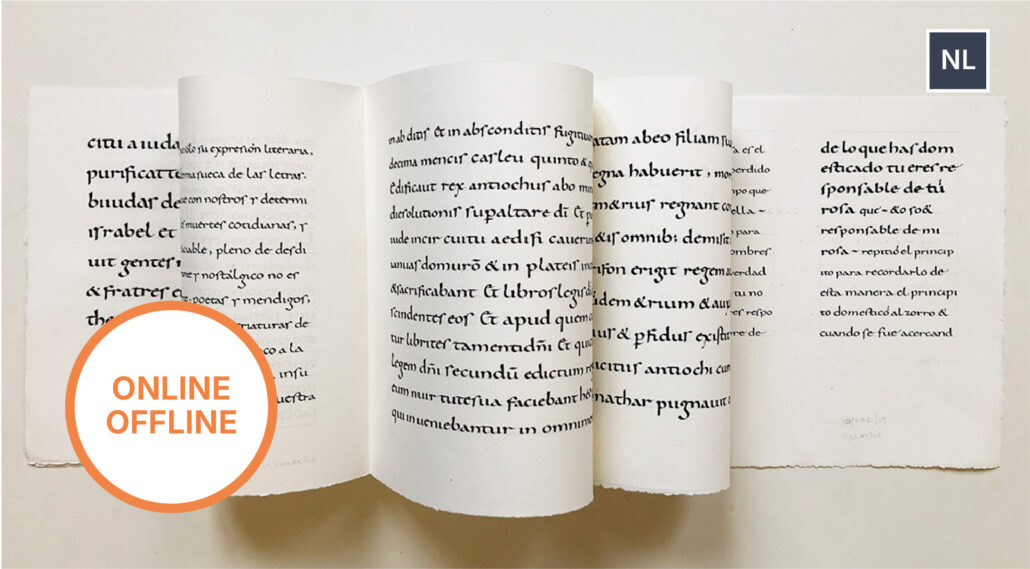 NL
citu a iuda
purificatte
biudas de
israbel et
uit gentes
& fratres
solo su expresión literaria,
sueca de las letras.
con nostros y determi
muertes cotidianas, y
pleno de desdi
y nostálgico no es
poetas y mendigos,
criaturas de
a la
insu
uestra
in ab ditis & in absconditis fugitiuor
decima mencis casleu quinto &
edificaut rex antiochus abo
diesolutionis supaltare dī Et
iude incir cuitu aedifi cauerun
ianuas domurō & in plateis in
&sacrificabant Et libros legis dī
scindentes eos Et apud quem
tur librites tamentidn̄i Et qui
legem dn̄i secundū edictum
cum nuir tutesua faciebant hec
qui inueniebantur in omni
atam abeo filiam
egna habuerit,
m&rius regnant
&is omnib: demisit
ifon erigit regem
idem &rium &
ius & pfidus existit
icitus antiochi cum
nathar pugnauit
a es el
perdido
mpo que
ella -
para
ombres
verdad
tu no
res respo
re de
de lo que has dom
esticado tu eres re
sponsable de tú
rosa que - &o so&
responsable de mi
rosa - repitió el princip
ito para recordarlo de
esta manera el principi
to domesticó al zorro &
cuando se fue acercand
ONLINE
OFFLINE